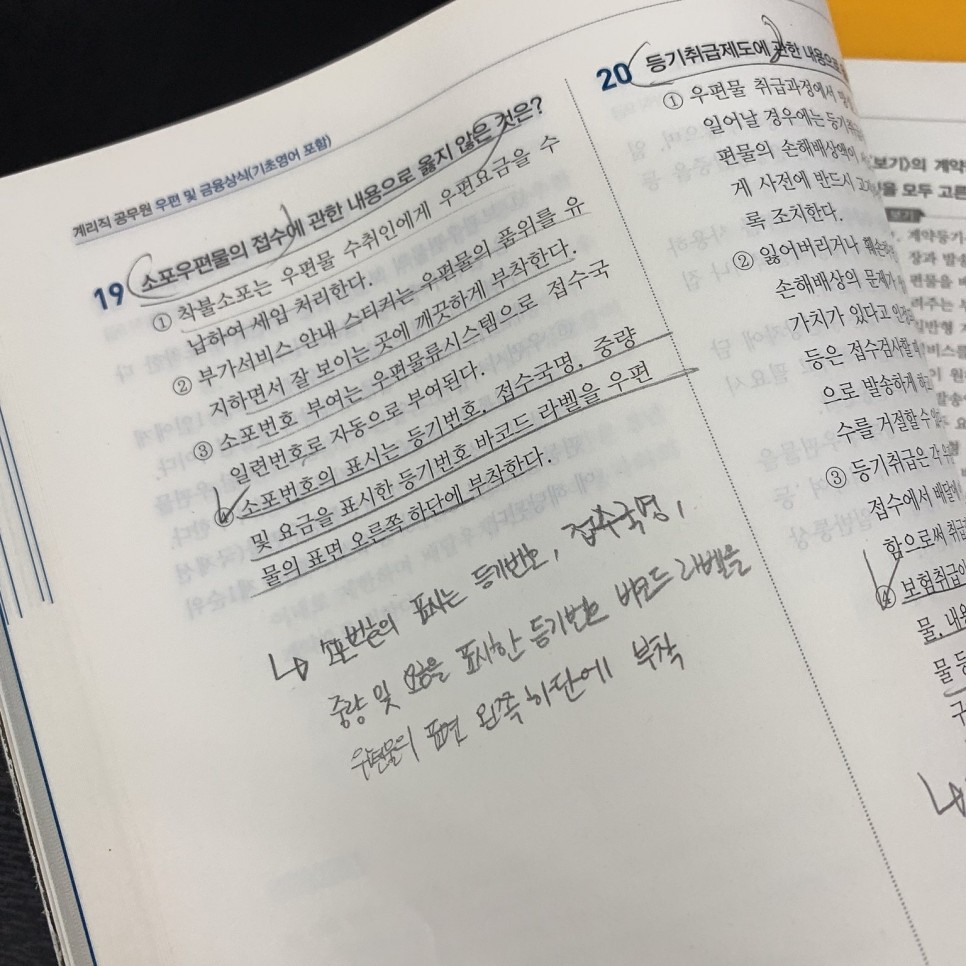 계리직 공무원 우편 및 금융상식(기초영어 포함)
19 소포우편물의 접수에 관한 내용으로 옳지 않은 것은?
① 착불소포는 우편물 수취인에게 우편요금을 수
납하여 세입 처리한다.
② 부가서비스 안내 스티커는 우편물의 품위를 유
지하면서 잘 보이는 곳에 깨끗하게 부착한다.
③ 소포번호 부여는 우편물류시스템으로 접수국
일련번호로 자동으로 부여된다.
소포번호의 표시는 등기번호, 접수국명, 중량
및 요금을 표시한 등기번호 바코드 라벨을 우편
물의 표면 오른쪽 하단에 부착한다.
↳ 소포번호의 표시는 등기번호, 접수국명,
중량 및 요금을 표시한 등기번호 바코드 라벨을
우편물의 표면 왼쪽 하단에 부착
20 등기취급제도에 관한 내용으로
① 우편물 취급과정에서
일어날 경우에는 등기취
편물의 손해배상액이
게 사전에 반드시 고
록 조치한다.
② 잃어버리거나 훼손하
손해배상의 문제가
가치가 있다고 인정
등은 접수검사할 때
으로 발송하게 하
수를 거절할 수
③ 등기취급은 각
접수에서 배달에
함으로써 취급
④ 보험취급이
물, 내용
물 등
구
보기)의 계약
을 모두 고른
보기
계약등기
장과 발송
편물을 배
려주는 부
일반형
비스를
기 원
발송